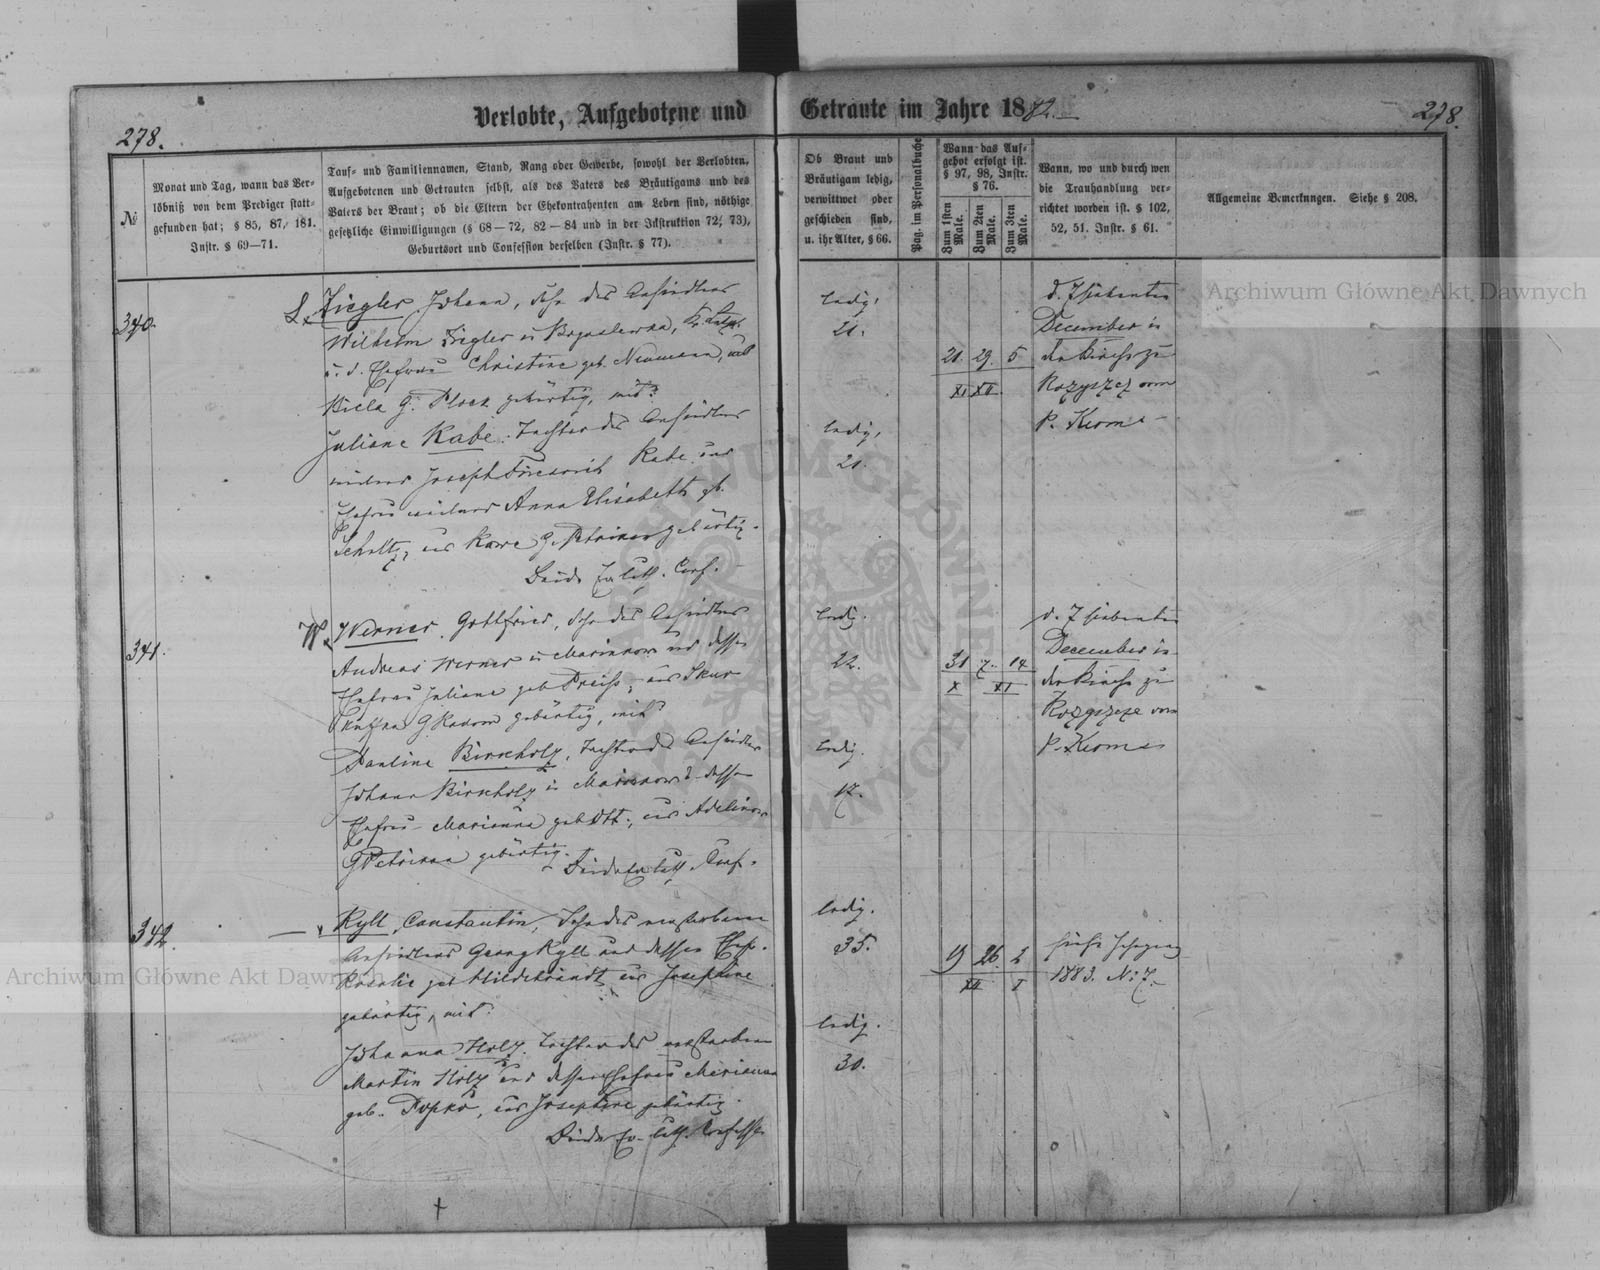 Verlobte, Aufgebotene und Getraute im Jahre 1882.
278.
278.
№
Monat und Tag, wann das Ver-
löbniß von dem Prediger statt-
gefunden hat; § 85, 87, 181.
Instr. § 69—71.
Tauf- und Familiennamen, Stand, Rang oder Gewerbe, sowohl der Verlobten,
Aufgebotenen und Getrauten selbst, als des Vaters des Bräutigams und des
Vaters der Braut; ob die Eltern der Ehekontrahenten am Leben sind, nöthige
gesetzliche Einwilligungen (§ 68—72, 82—84 und in der Instruktion 72, 73),
Geburtsort und Confession derselben (Instr. § 77).
Ob Braut und
Bräutigam ledig,
verwittwet oder
geschieden sind,
u. ihr Alter, § 66.
Pag. im Personalbuche
Wann das Auf-
gebot erfolgt ist.
§ 97, 98, Instr.
§ 76.
Zum 1sten
Male.
Zum 2ten
Male.
Zum 3ten
Male.
Wann, wo und durch wen
die Trauhandlung ver-
richtet worden ist. § 102,
52, 51. Instr. § 61.
Allgemeine Bemerkungen. Siehe § 208.
340.
Ziegler, Johann, Sohn des Ansiedlers
Wilhelm Ziegler in
u. d. Ehefrau Christine geb. Neumann, aus
G. Plock gebürtig, mit
Juliane Rabe, Tochter des Ansiedlers
Joseph Rabe und
Ehefrau Anna Elisabeth gb.
Scholtz, aus G. Petrikau gebürtig.
Beide Ev. Luth. Conf.
ledig,
21.
ledig,
21.
21. 29. 5
XI XII.
d. 7 siebenten
December in
der Kirche zu
Rozyszcz vom
P. Kerm
341.
W.
Werner, Gottfried, Sohn des Ansiedlers
Andreas Werner in Marianow und dessen
Ehefrau Juliane geb. Preiss, aus
G Radom gebürtig, mit
Pauline Birkholz, Tochter des Ansiedlers
Johann Birkholz in Marianow u dessen
Ehefrau Marianna geb. Ott, aus Adelinow
G Petrikau gebürtig. Beide Ev. Luth. Conf.
ledig.
22.
ledig.
17.
31 7. 14
X XI
d. 7 siebenten
December in
der Kirche zu
Rozyszcze vom
P. Kerm
342.
Ryll, Constantin, Sohn des verstorbenen
Ansiedlers Georg Ryll und dessen Ehefr.
Rosalie geb Hildebrandt aus Josephine
gebürtig, mit
Johanna Holz, Tochter des verstorbenen
Martin Holz und dessen Ehefrau Marianna
geb. Popko, aus Josephine gebürtig.
Beide Ev. Luth. Confession
ledig.
35.
ledig.
30.
19 26. 2
XII I
siehe Jahrgang
1883. No 7.
Archiwum Główne Akt Dawnych
Archiwum Główne Akt Dawnych
ARCHIWUM GŁÓWNE AKT DAWNYCH